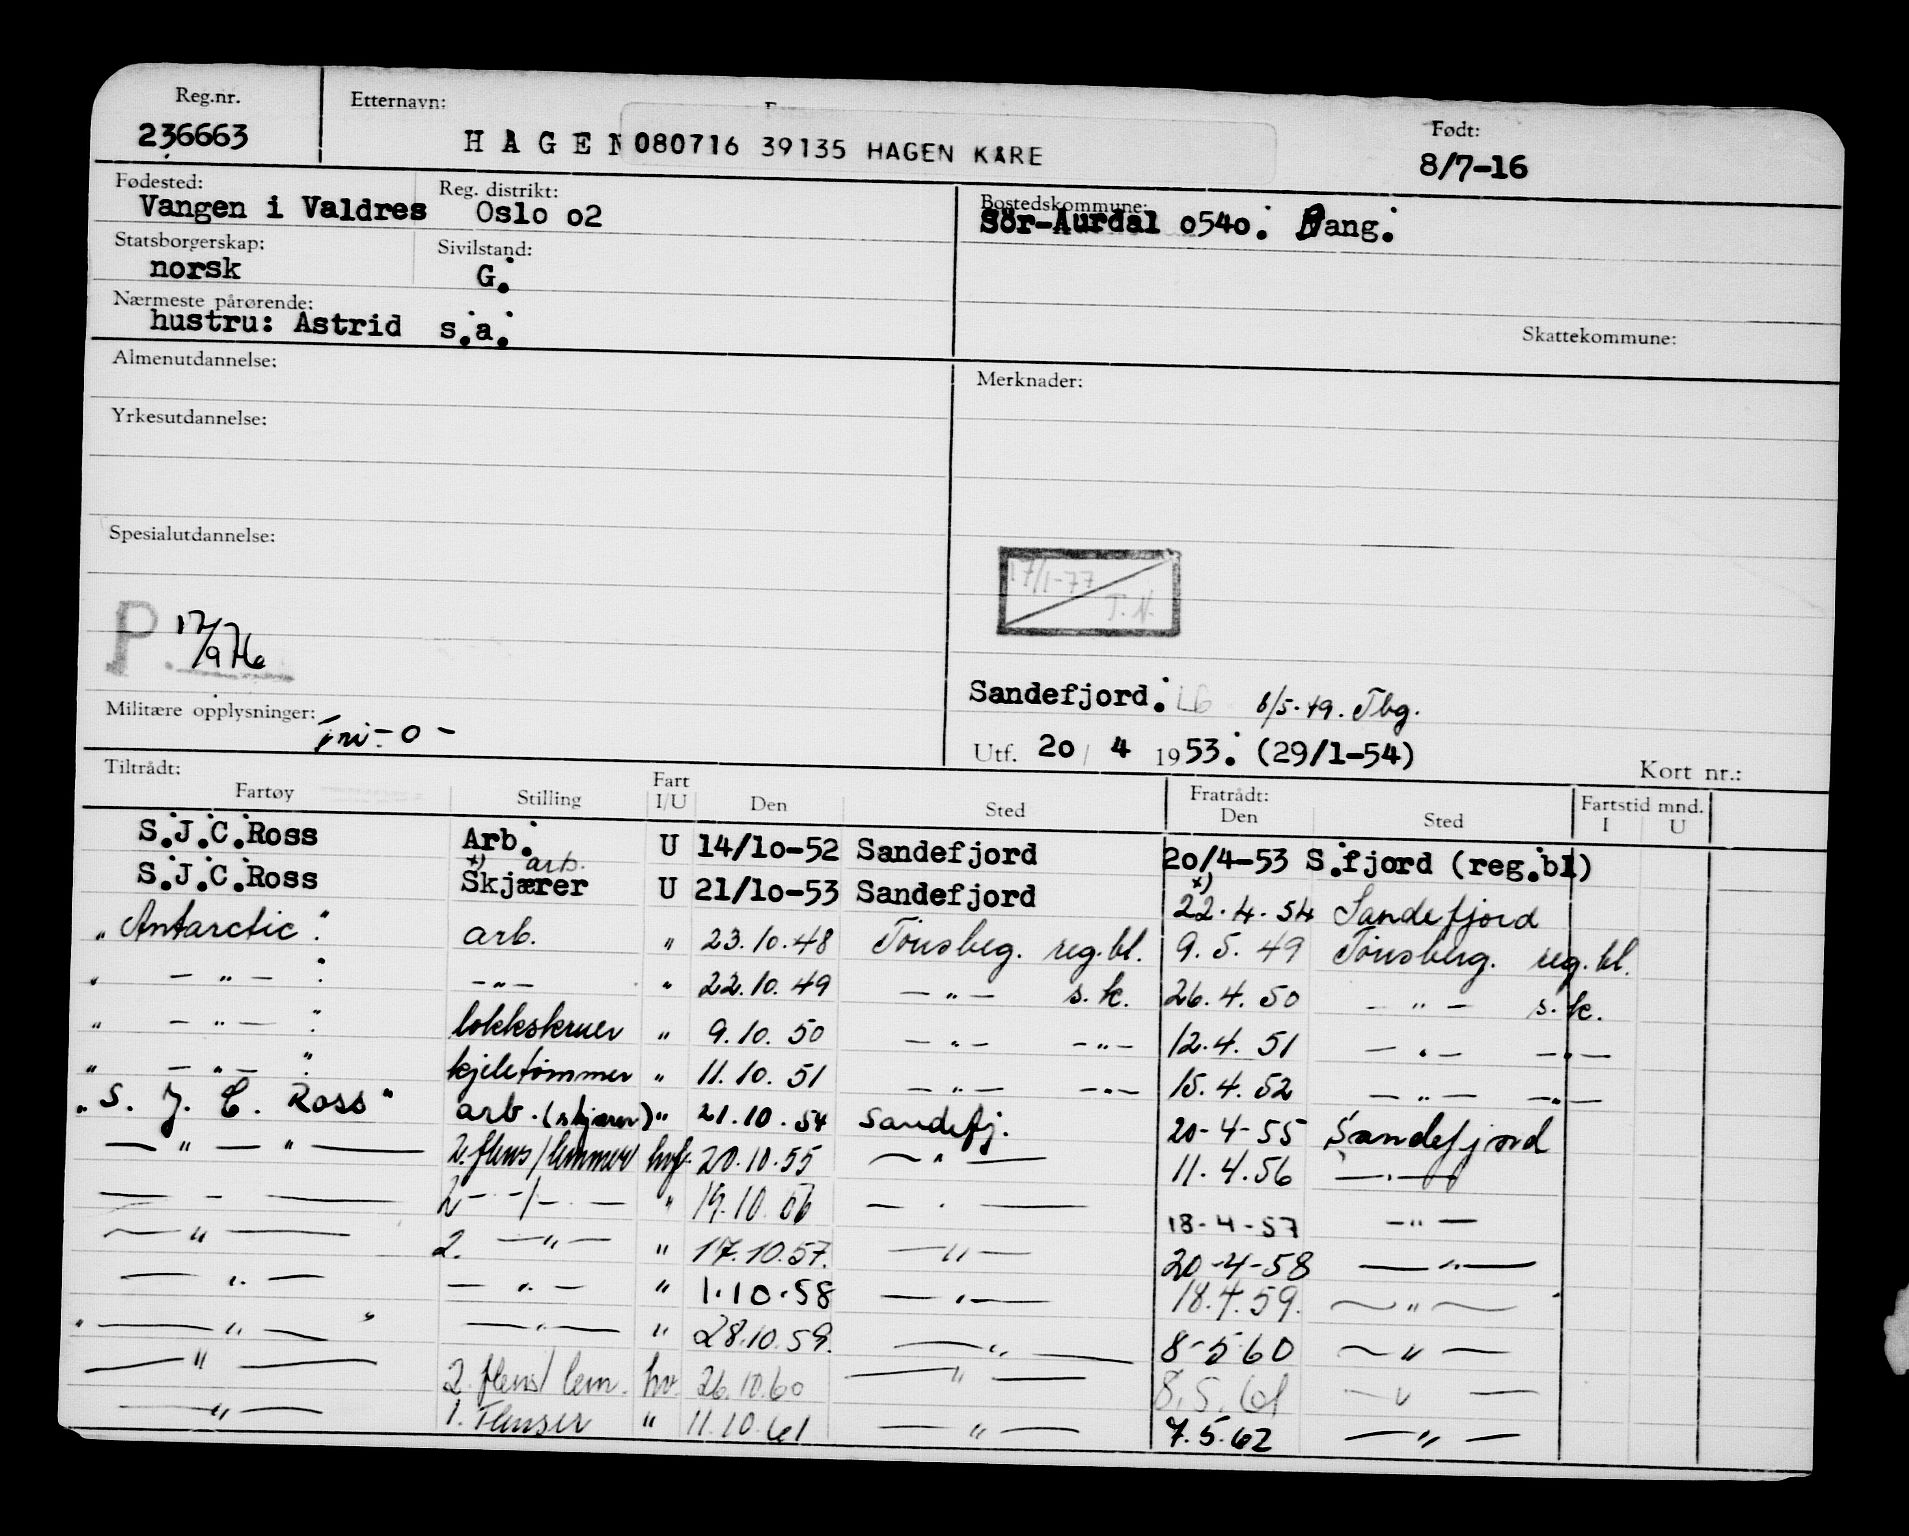 Reg.nr. Etternavn: Født:
236663 HAGEN 080716 39135 HAGEN KARE 8/7-16
Fødested: Reg. distrikt: Bostedskommune:
Vangen i Valdres Oslo o2 Sör-Aurdal o54o. Vang.
Statsborgerskap: Sivilstand:
norsk G.
Nærmeste pårørende:
hustru: Astrid s.a.
Skattekommune:
Almenutdannelse: Merknader:
Yrkesutdannelse:
Spesialutdannelse:
17/1-77
T.N.
P. 17/9 76
Sandefjord. LG 6/5-49. Tbg.
Militære opplysninger: - 0 -
Utf. 20 / 4 1953. (29/1-54)
Kort nr.:
Tiltrådt: Fratrådt: Fartstid mnd.
Fartøy Stilling Fart I/U Den Sted Den Sted I U
S.J.C.Ross Arb. U 14/10-52 Sandefjord 20/4-53 S.fjord (reg.bl)
S.J.C.Ross x) arb. Skjærer U 21/10-53 Sandefjord x) 22.4.54 Sandefjord
"Antarctic" arb. " 23.10.48 Tønsberg. reg.bl. 9.5.49 Tønsberg. reg.bl.
" — " — " — " — " 22.10.49 — " — s.k. 26.4.50 — " — s.k.
" — " — " lokkskruer " 9.10.50 — " — — " — 12.4.51 — " — — " —
" — " — " kjeletømmer " 11.10.51 — " — — " — 15.4.52 — " — — " —
"S. J. C. Ross" arb. (skjærer) " 21.10.54 Sandefj. 20-4-55 Sandefjord
— " — " — 2. flens/lemmer hvf. 20.10.55 — " — 11.4.56 — " —
— - — 2 - - / - - " 19.10.56 — " — 18-4-57 — " —
— " — 2. — " — " 17.10.57. — " — 20-4-58 — " —
— " — — " — " 1.10.58 — " — 18.4.59. — " —
" — " — " — " — " 28.10.59. — " — 8-5-60 — " —
— " — 2. flens/lem. hv. 26.10.60 — " — 8.5.61 — " —
— " — 1. Flenser " 11.10.61 — " — 7.5.62 — " —